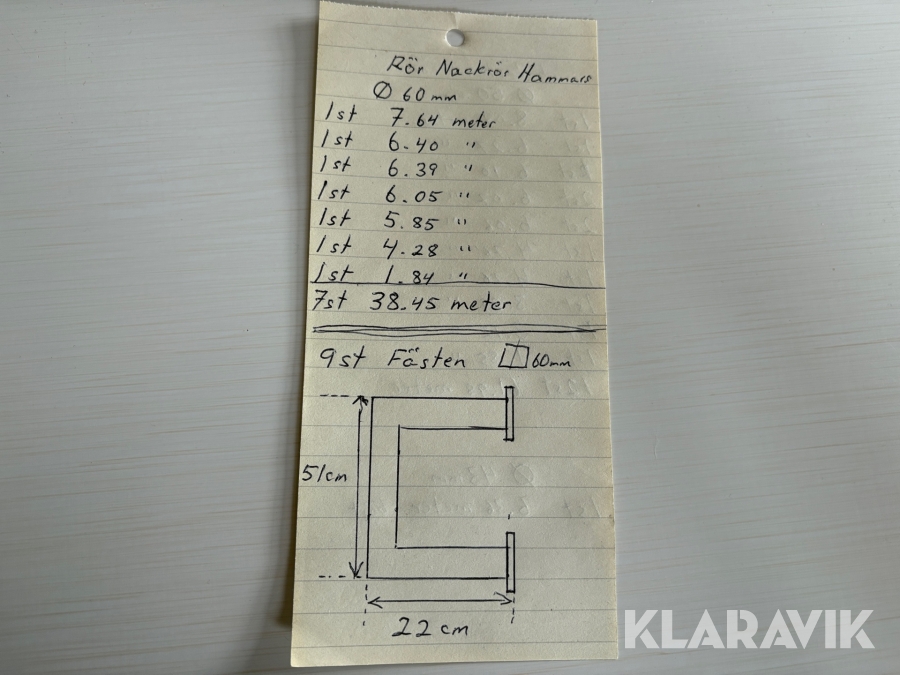 Rör Nackrör Hammars
Ø 60mm
1st 7.64 meter
1st 6.40 "
1st 6.39 "
1st 6.05 "
1st 5.85 "
1st 4.28 "
1st 1.84 "
7st 38.45 meter
9st Fästen 60mm
51cm
22cm
KLARAVIK